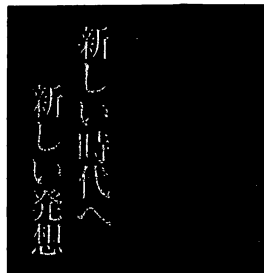 新しい時代へ
新しい発想